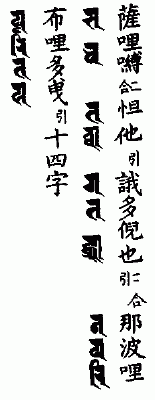 薩哩嚩二合怛他引誐多倪也引二合那波哩
𑖭𑖨𑖿𑖪𑖝𑖞𑖯𑖐𑖝𑖕𑖿𑖗𑖯𑖡𑖢𑖨𑖰
布哩多曳引十四字
𑖢𑖳𑖨𑖰𑖝𑖧𑖸